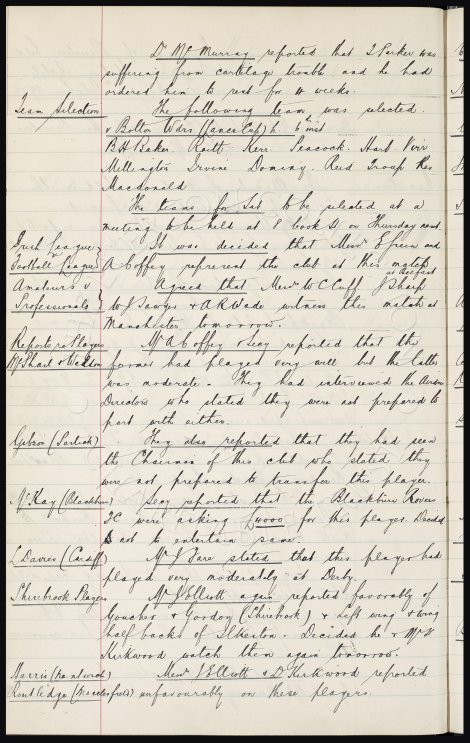 Dr McMurray reported that J Parker was
suffering from cartilage trouble and he had
ordered him to rest for 4 weeks.
Team Selection The following team was selected
v Bolton Wdrs (Lancs Cup) h. 6th inst
B H Baker. Raitt Kerr Peacock. Hart. Virr
Mellington Irvine Dominy. Reid Troup Res
Macdonald
The teams for Sat to be selected at a
meeting to be held at 8 Cook St on Thursday next.
Irish League It was decided that Messrs Green and
v
Football League A Coffey represent the club at this match
at Belfast
Amateurs v Agreed that Messrs W C Cuff J Sharp
Professionals W J Sawyer & A R Wade witness this match at
Manchester tomorrow.
Reports re Players Mr A Coffey & Secy reported that the
McPhail & Weldon former had played very well but the latter
was moderate. They had interviewed the Airdrie
Directors who stated they were not prepared to
part with either.
Gibson (Partick) They also reported that they had seen
the Chairman of this club who stated they
were not prepared to transfer this player.
McKay (Blackburn) Secy reported that the Blackburn Rovers
FC were asking £4000 for this player. Decided
not to entertain same.
L Davies (Cardiff) Mr J Fare stated that this player had
played very moderately at Derby.
Shirebrook Players Mr J Elliott again reported favorably of
& Gordon (Shirebrook) & Left wing & wing
half backs of Ilkeston. Decided he & Mr D
Kirkwood watch them again tomorrow.
Harris (Nantwich) Messrs J Elliott & D Kirkwood reported
Routledge (Macclesfield) unfavourably on these players.